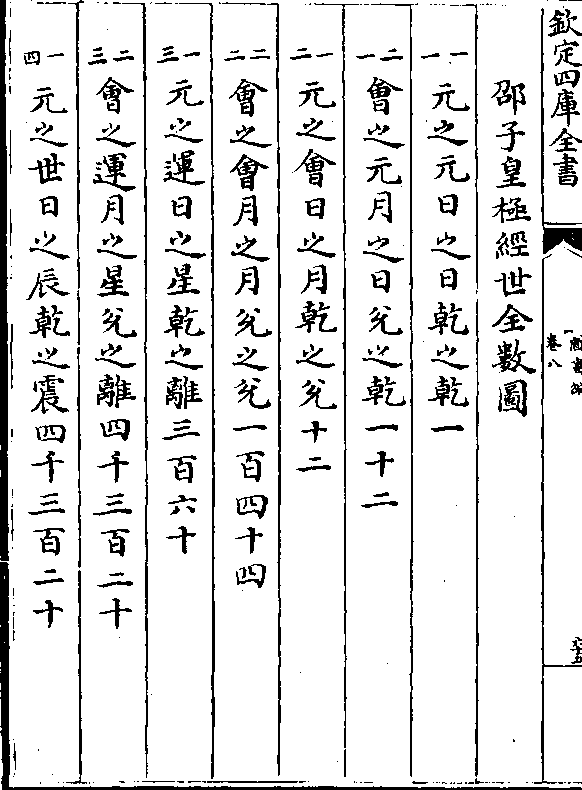 欽定四庫全書
卷八
邵子皇極經世全數圖
一一元之元日之日乾之乾一
二一會之元月之日兌之乾一十二
一二元之會日之月乾之兌十二
二二會之會月之月兌之兌一百四十四
一三元之運日之星乾之離三百六十
二三會之運月之星兌之離四千三百二十
一四元之世日之辰乾之震四千三百二十